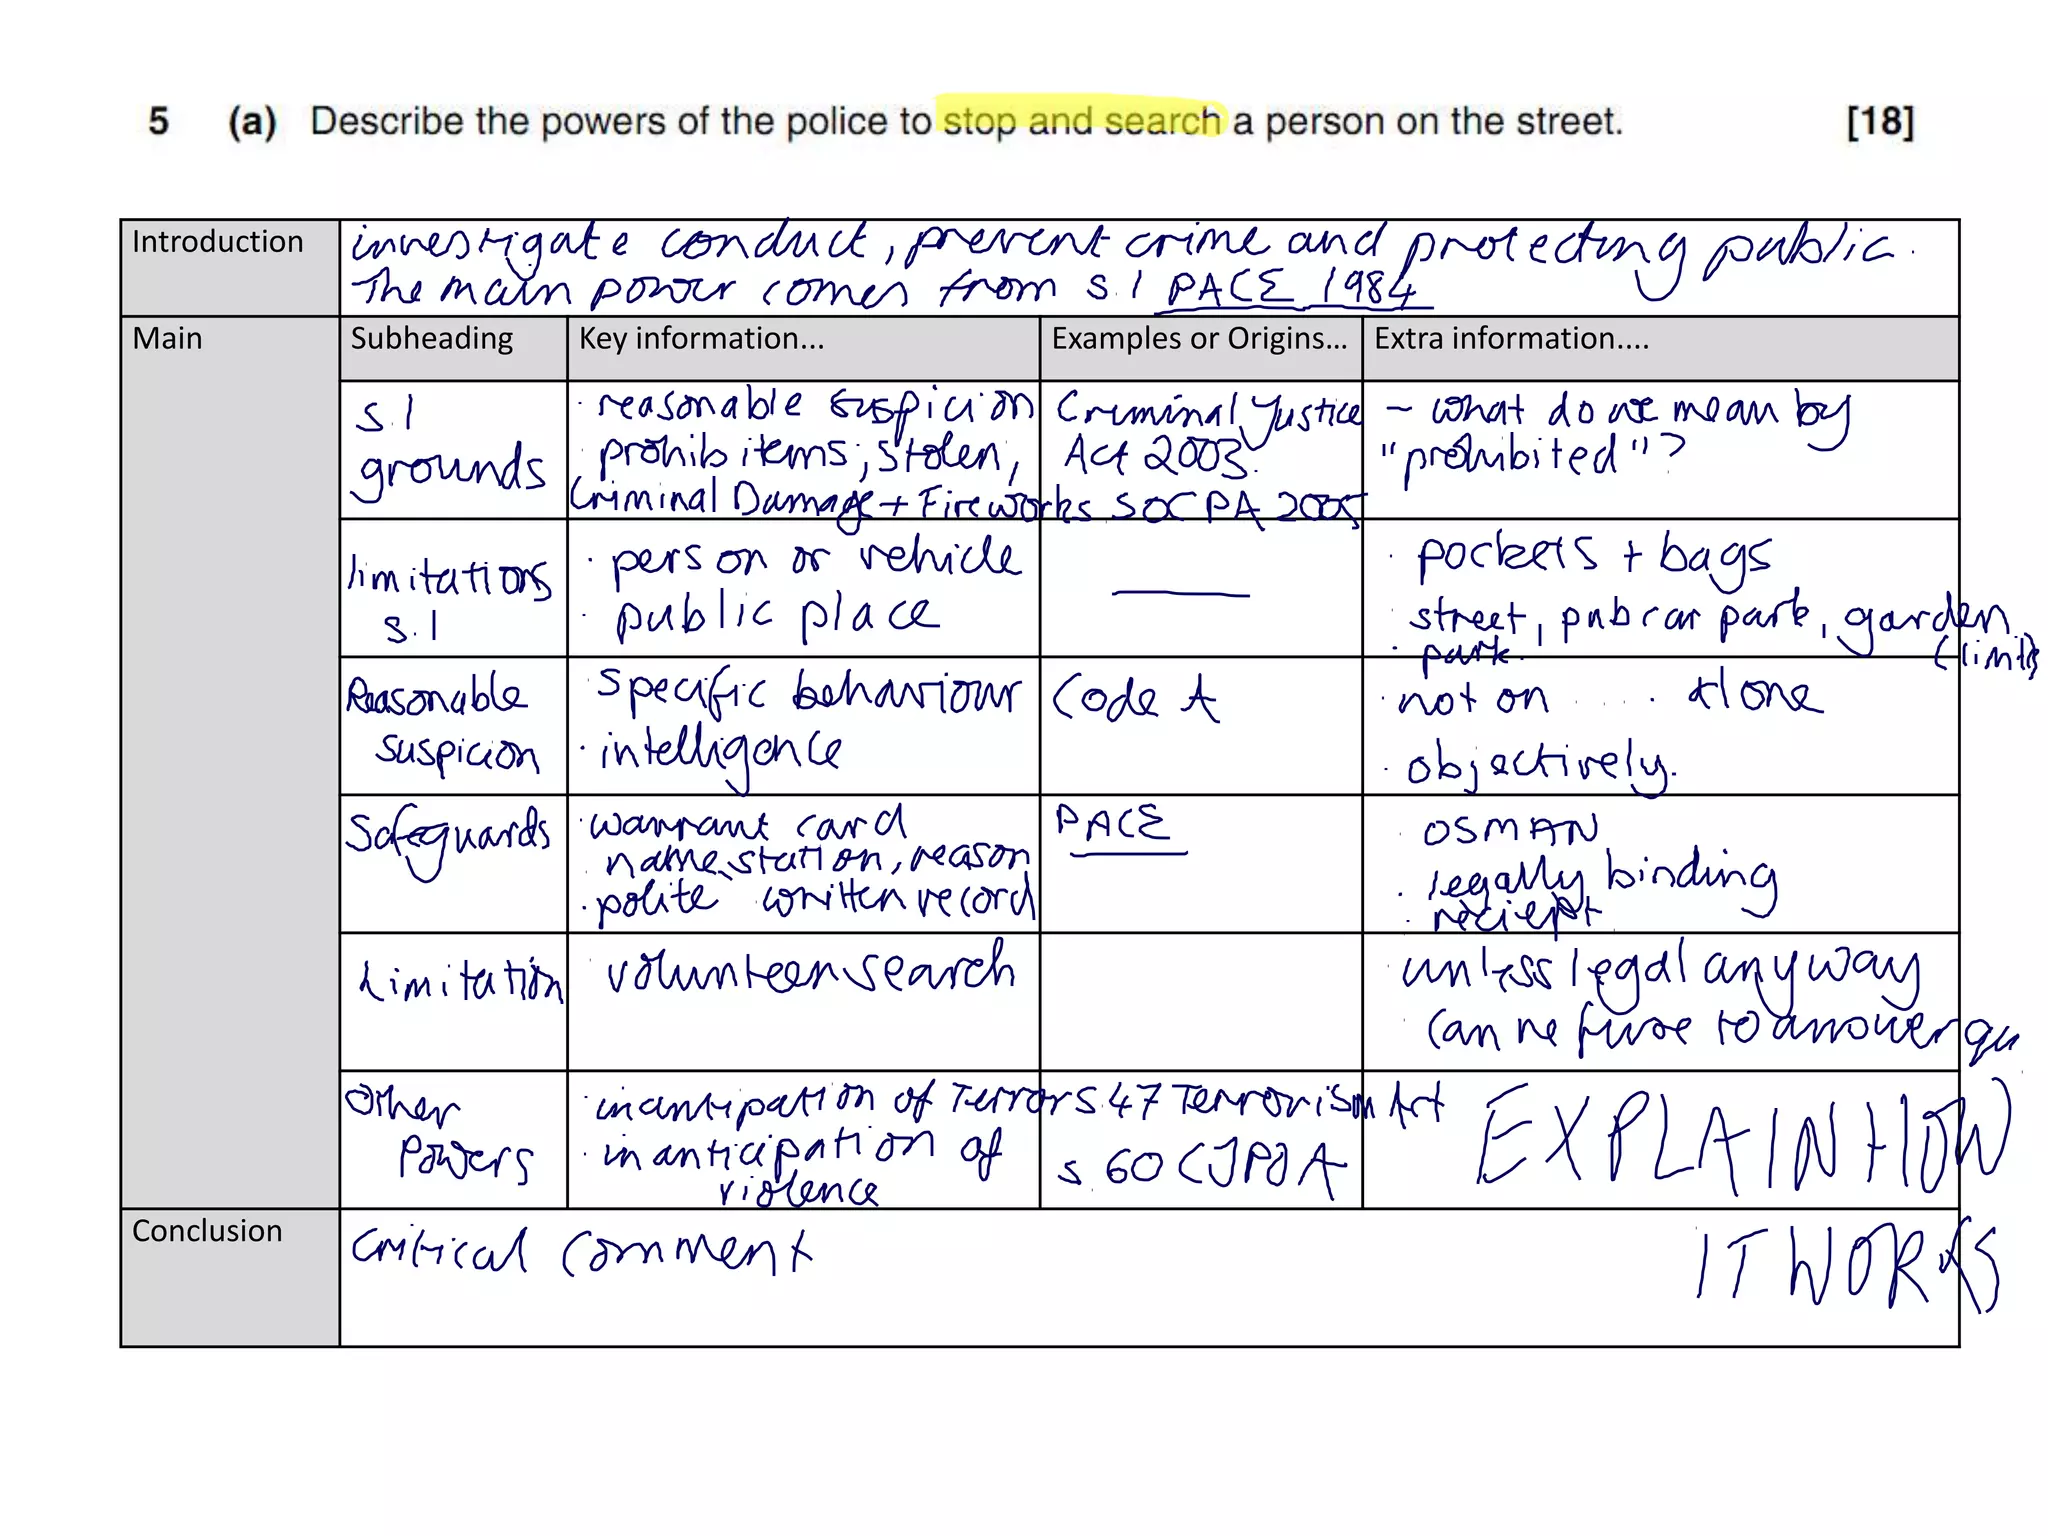 5 (a) Describe the powers of the police to stop and search a person on the street. [18]
Introduction
investigate conduct, prevent crime and protecting public.
The main power comes from s.1 PACE 1984
Main
Subheading
Key information...
Examples or Origins...
Extra information....
s.1
grounds
· reasonable suspicion
· prohib items, stolen,
Criminal Damage + Fireworks
Criminal Justice
Act 2003.
SOCPA 2005
- what do we mean by
"prohibited"?
limitations
s.1
· person or vehicle
· public place
· pockets + bags
· street, pub car park, garden
· park. (limits
Reasonable
suspicion
· specific behaviour
· intelligence
Code A
· not on ..... alone
· objectively.
Safeguards
· warrant card
· name, station, reason
· polite written record
PACE
· OSMAN
· legally binding
· reciept
Limitation
volunteer search
· unless legal anyway
· can refuse to answer qu
Other
Powers
· in antipation of Terror
· in anticipation of
violence
s.47 Terrorism Act
s.60 CJPOA
EXPLAINTION
Conclusion
Critical Comment
IT WORKS